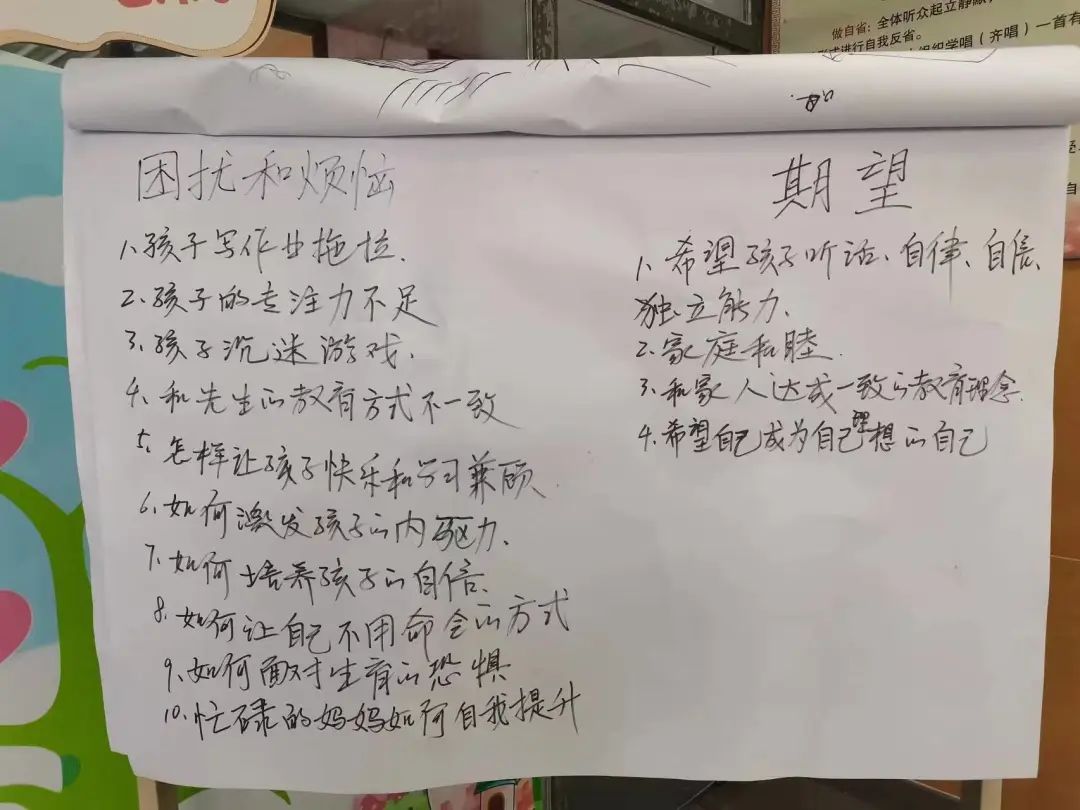 做自省：全体听众起立静
进行自我反省。
学唱（齐唱）一首有
困扰和烦恼
1、孩子写作业拖拉.
2、孩子的专注力不足
3、孩子沉迷游戏.
4、和先生的教育方式不一致
5、怎样让孩子快乐和学习兼顾
6、如何激发孩子的内驱力.
7、如何培养孩子的自信.
8、如何让自己不用命令的方式
9、如何面对生育的恐惧
10、忙碌的妈妈如何自我提升
期望
1、希望孩子听话、自律、自信、
独立能力.
2、家庭和睦.
3、和家人达成一致的教育理念.
4、希望自己成为自己理想的自己